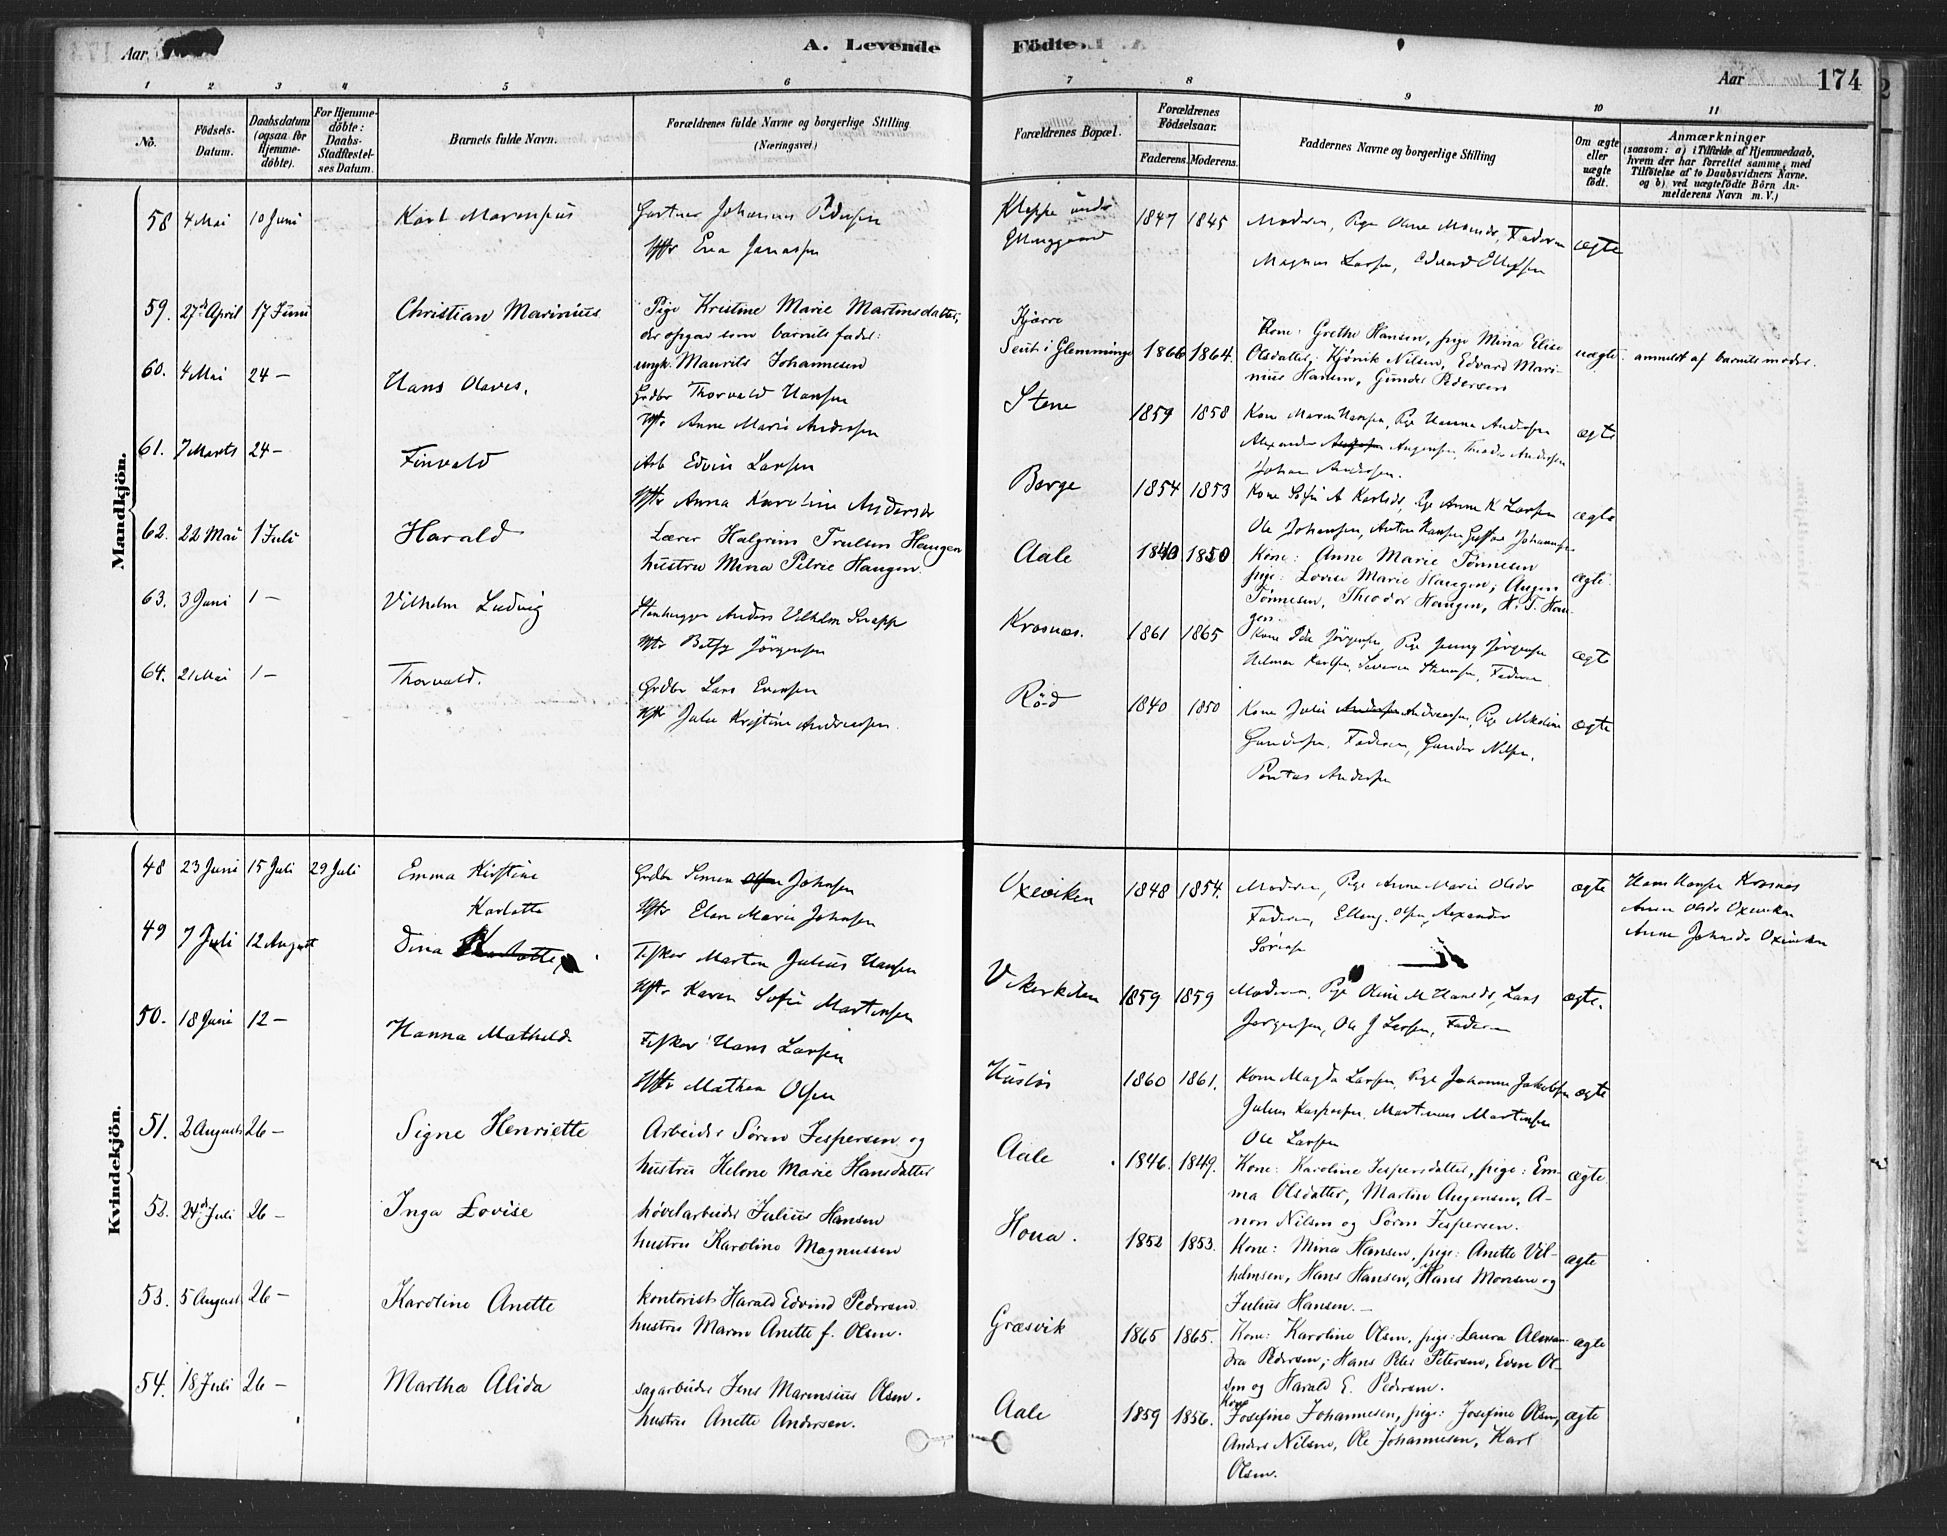 Aar
A. Levende
Födte.
Aar
174
1
2
3
4
5
6
7
8
9
10
11
No.
Födsels-
Datum.
Daabsdatum
(ogsaa for
Hjemme-
döbte).
For Hjemme-
döbte:
Daabs-
Stadfæstel-
ses Datum.
Barnets fulde Navn.
Forældrenes fulde Navne og borgerlige Stilling
(Næringsvei.)
Forældrenes Bopæl.
Forældrenes
Födselsaar.
Faderens.
Moderens.
Faddernes Navne og borgerlige Stilling
Om ægte
eller
uægte
födt.
Anmærkninger
(saasom: a) i Tilfælde af Hjemmedaab,
hvem der har forrettet samme, med
Tilföielse af to Daabsvidners Navne.
og b) ved uægtefödte Börn An-
melderens Navn m. V.)
Mandkjön.
58 4 Mai 10 Juni Karl Marensius Gartner Johannes Pedersen Kleppe under 1847 1845 Moderen, Pige Anne Monsdr, Faderen ægte
Hstr Eva Jonassen Magnus Larsen, Edvard Ellefsen
59. 27de April 17 Juni Christian Marinius Pige Kristine Marie Martinsdatter, Kjærre
der opgav som barnets fader: Seut i Glemminge 1866 1864. Kone: Grethe Hansen, pige Mina Elise uægte anmeldt af barnets moder.
ungk. Maurits Johannesen Olsdatter, Kjørvik Nilsen, Edvard Mari-
nius Hansen, Gunder Pedersen
60. 4 Mai 24 — Hans Olaves. Grdbr Thorvald Hansen Stene 1859 1858 Kone Maren Hansen, Pige Hanna Andersen ægte
Hstr Anne Marie Andersen Alexander Augensen, Theodor Andersen
Johan Andersen.
61. 7 Marts 24 — Finvald Arb Edvin Larsen Borge 1854 1853 Kone Sofie A Karlsdr, Pige Anne K Larsen ægte
Hstr Anna Karoline Andersdr Ole Johansen, Anton Hansen, Johannesen
62. 22 Mai 1 Juli Harald Lærer Halgrim Trulsen Haugen Aale 1840 1850 Kone: Anne Marie Tønnesen ægte
hustru Mina Petrie Haugen. pige: Lovise Marie Haugen, Augen
Tønnesen, Theodor Haugen, H. T. Hau-
gen.
63. 3 Juni 1 — Vilhelm Ludvig Stenhugger Anders Vilhelm Krasnæs. 1861 1865 Kone Jørgensen, Pige Jenny Jørgensen ægte
Hstr Betsy Jörgensen Hilmar Karlsen, Severin Stensen, Faderen
64. 21 Mai 1 — Thorvald. Grdbr Lars Evensen Röd 1840 1850 Kone Julie Andreassen, Pige Nikoline ægte
Hstr Julie Kristine Andreassen. Gundersen, Faderen, Gunder Nilsen.
Pontus Andersen
Kvindekjön.
48 23 Juni 15 Juli 29 Juli Emma Kirstine Grdbr Simen Johnsen Oxeviken 1848 1854. Moderen, Pige Anne Marie Olsdr ægte Hans Hansen Krosnæs
Karlotte Hstr Elen Marie Johnsen Faderen, Elling Olsen, Alexander Anne Olsdr Oxeviken
Sörensen Anne Johnsdr Oxeviken
49 7 Juli 12 August Dina Fisker Morten Julius Hansen Vikerkilen 1859 1859 Moderen, Pige Oline M Hansdr, Lars ægte.
Hstr Karen Sofie Martinsen Jørgensen, Ole J Larsen, Faderen
50. 18 Juni 12 — Hanna Mathilde Fisker Hans Larsen Huslös 1860 1861. Kone Magda Larsen, Pige Johanne Jakobsen ægte
Hstr Mathea Olsen Julius Kaspersen, Martinus Martinsen
Ole Larsen
51. 2 August 26 — Signe Henriette Arbeider Søren Jespersen og Aale. 1846. 1849. Kone: Karoline Jespersdatter, pige: Em- ægte
hustru Helene Marie Hansdatter ma Olsdatter, Martin Augensen, A-
non Nilsen og Søren Jespersen.
52. 24de Juli 26 — Inga Lovise høvelarbeider Julius Hansen Houa. 1852 1853. Kone: Mina Hansen, pige: Anette Vil- ægte
hustru Karoline Magnussen helmsen, Hans Hansen, Hans Monsen og
Julius Hansen. —
53. 5 August 26 — Karoline Anette kontorist Harald Edvind Pedersen Græsvik 1865 1865. Kone: Karoline Olsen, pige: Laura Alexan- ægte
hustru Maren Anette f. Olsen. dra Pedersen; Hans Peter Petersen, Even Ol-
sen og Harald E. Pedersen.
54. 18 Juli 26 — Martha Alida sagarbeider Jens Marensius Olsen. Aale 1859 1856. Kone Josefine Johannesen, pige: Josefine Olsen, ægte
hustru Anette Andersen. Anders Nilsen, Ole Johannesen, Karl
Olsen.